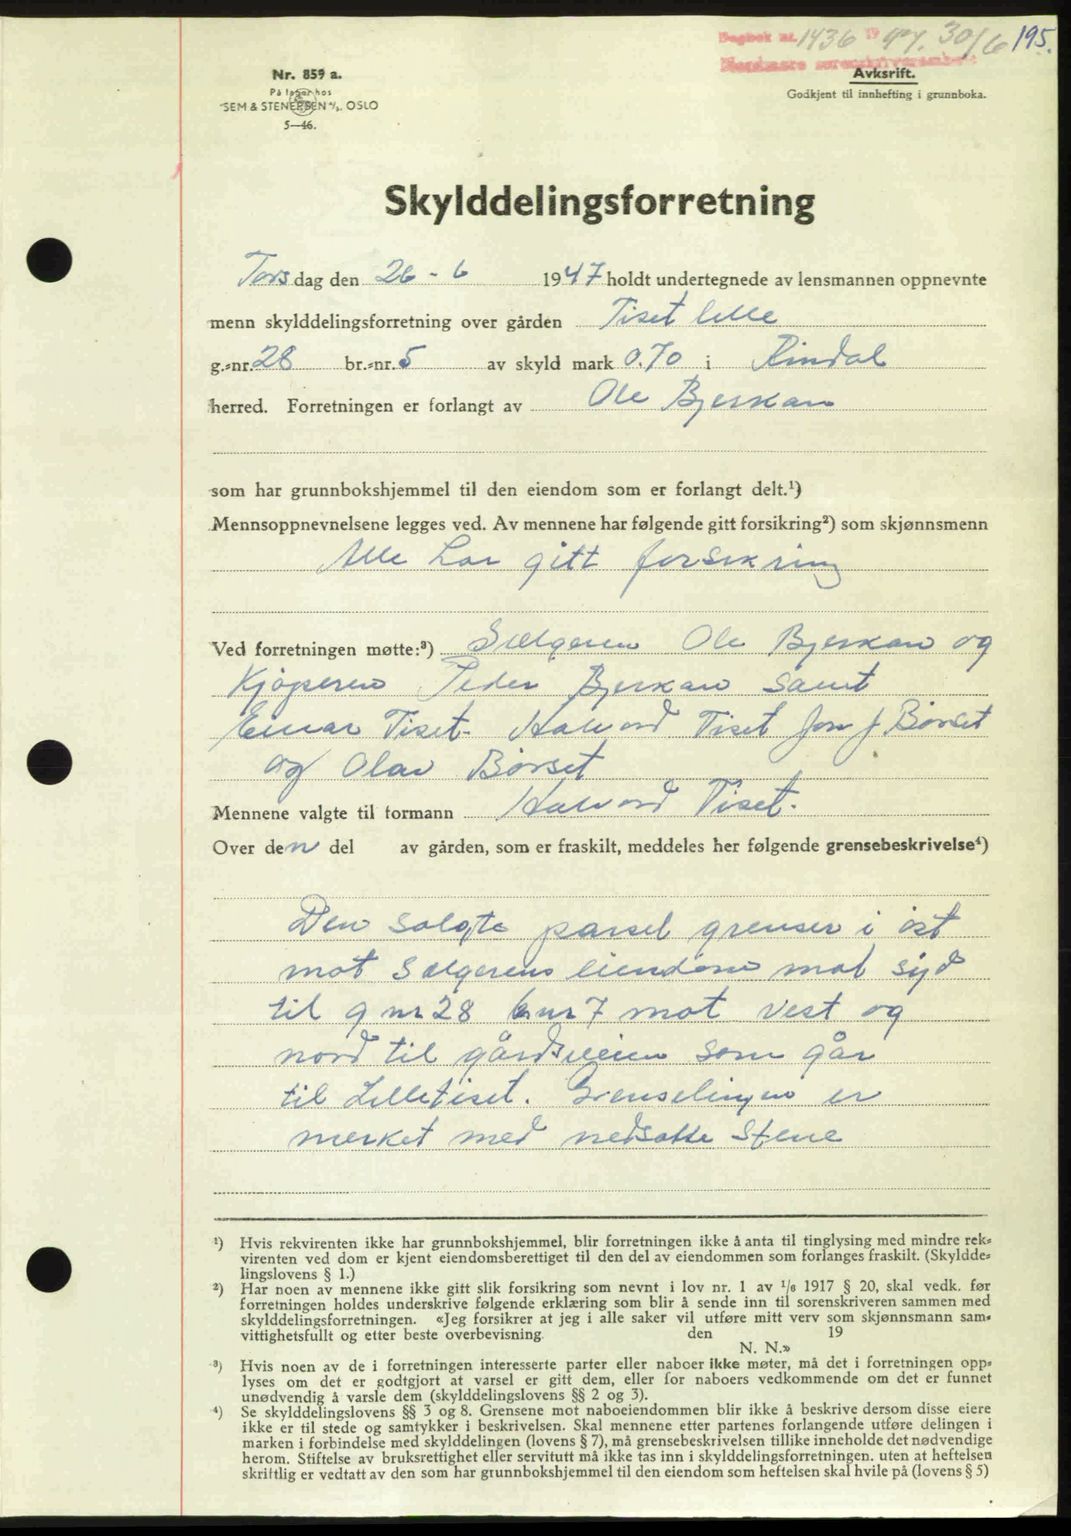 Dagbok nr. 1436 1947. 30/6 195.
Nordmøre sorenskriverembete
Nr. 859 a.
På lager hos
SEM & STENERSEN A/S. OSLO
5—46.
Avksrift.
Godkjent til innhefting i grunnboka.
Skylddelingsforretning
Torsdag den 26 - 6 1947 holdt undertegnede av lensmannen oppnevnte
menn skylddelingsforretning over gården Tiset lille
g.-nr. 28 br.-nr. 5 av skyld mark 0.70 i Rindal
herred. Forretningen er forlangt av Ole Bjerkan
som har grunnbokshjemmel til den eiendom som er forlangt delt.¹)
Mennsoppnevnelsene legges ved. Av mennene har følgende gitt forsikring²) som skjønnsmenn
Alle har gitt forsikring
Ved forretningen møtte:³) Sælgeren Ole Bjerkan og
Kjøperen Peder Bjerkan samt
Einar Tiset. Halvord Tiset Jon J Børset
og Olav Børset
Mennene valgte til formann Halvord Tiset.
Over den del av gården, som er fraskilt, meddeles her følgende grensebeskrivelse⁴)
Den solgte parsel grenser i øst
mot Sælgerens eiendom mot syd
til g nr 28 b nr 7 mot vest og
nord til gårdsveien som går
til Lilletiset. Grenselinjen er
merket med nedsatte stene
¹) Hvis rekvirenten ikke har grunnbokshjemmel, blir forretningen ikke å anta til tinglysing med mindre rek-
virenten ved dom er kjent eiendomsberettiget til den del av eiendommen som forlanges fraskilt. (Skyldde-
lingslovens § 1.)
²) Har noen av mennene ikke gitt slik forsikring som nevnt i lov nr. 1 av ¹/₆ 1917 § 20, skal vedk. før
forretningen holdes underskrive følgende erklæring som blir å sende inn til sorenskriveren sammen med
skylddelingsforretningen. «Jeg forsikrer at jeg i alle saker vil utføre mitt verv som skjønnsmann sam-
vittighetsfullt og etter beste overbevisning. den 19
N. N.»
³) Hvis noen av de i forretningen interesserte parter eller naboer ikke møter, må det i forretningen opp-
lyses om det er godtgjort at varsel er gitt dem, eller for naboers vedkommende om det er funnet
unødvendig å varsle dem (skylddelingslovens §§ 2 og 3).
⁴) Se skylddelingslovens §§ 3 og 8. Grensene mot naboeiendommen blir ikke å beskrive dersom disse eiere
ikke er til stede og samtykker i beskrivelsen. Skal mennene etter partenes forlangende utføre delingen i
marken i forbindelse med skylddelingen (lovens § 7), må grensebeskrivelsen tillike inneholde det nødvendige
herom. Stiftelse av bruksrettighet eller servitutt må ikke tas inn i skylddelingsforretningen. uten at heftelsen
skriftlig er vedtatt av den som har grunnbokshjemmel til den eiendom som heftelsen skal hvile på (lovens § 5)